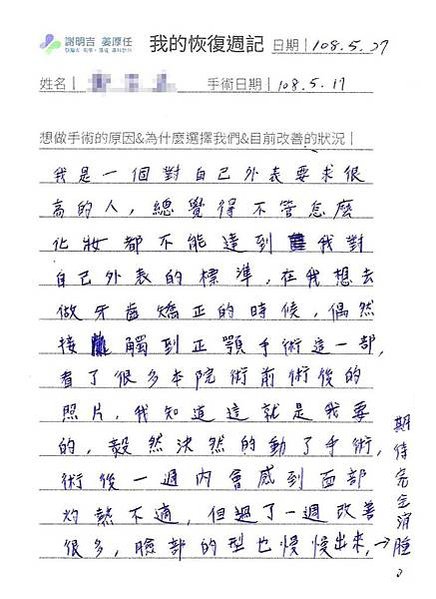 謝明吉 姜厚任
我的恢復週記 日期｜108.5.27
姓名｜ 手術日期｜108.5.17
想做手術的原因&為什麼選擇我們&目前改善的狀況｜
我是一個對自己外表要求很
高的人，總覺得不管怎麼
化妝都不能達到我對
自己外表的標準，在我想去
做牙齒矯正的時候，偶然
接觸到正顎手術這一部，
看了很多本院術前術後的
照片，我知道這就是我要
的，毅然決然的動了手術，
術後一週內會感到面部
灼熱不適，但過了一週改善
很多，臉部的型也慢慢出來，→
期待完全消腫